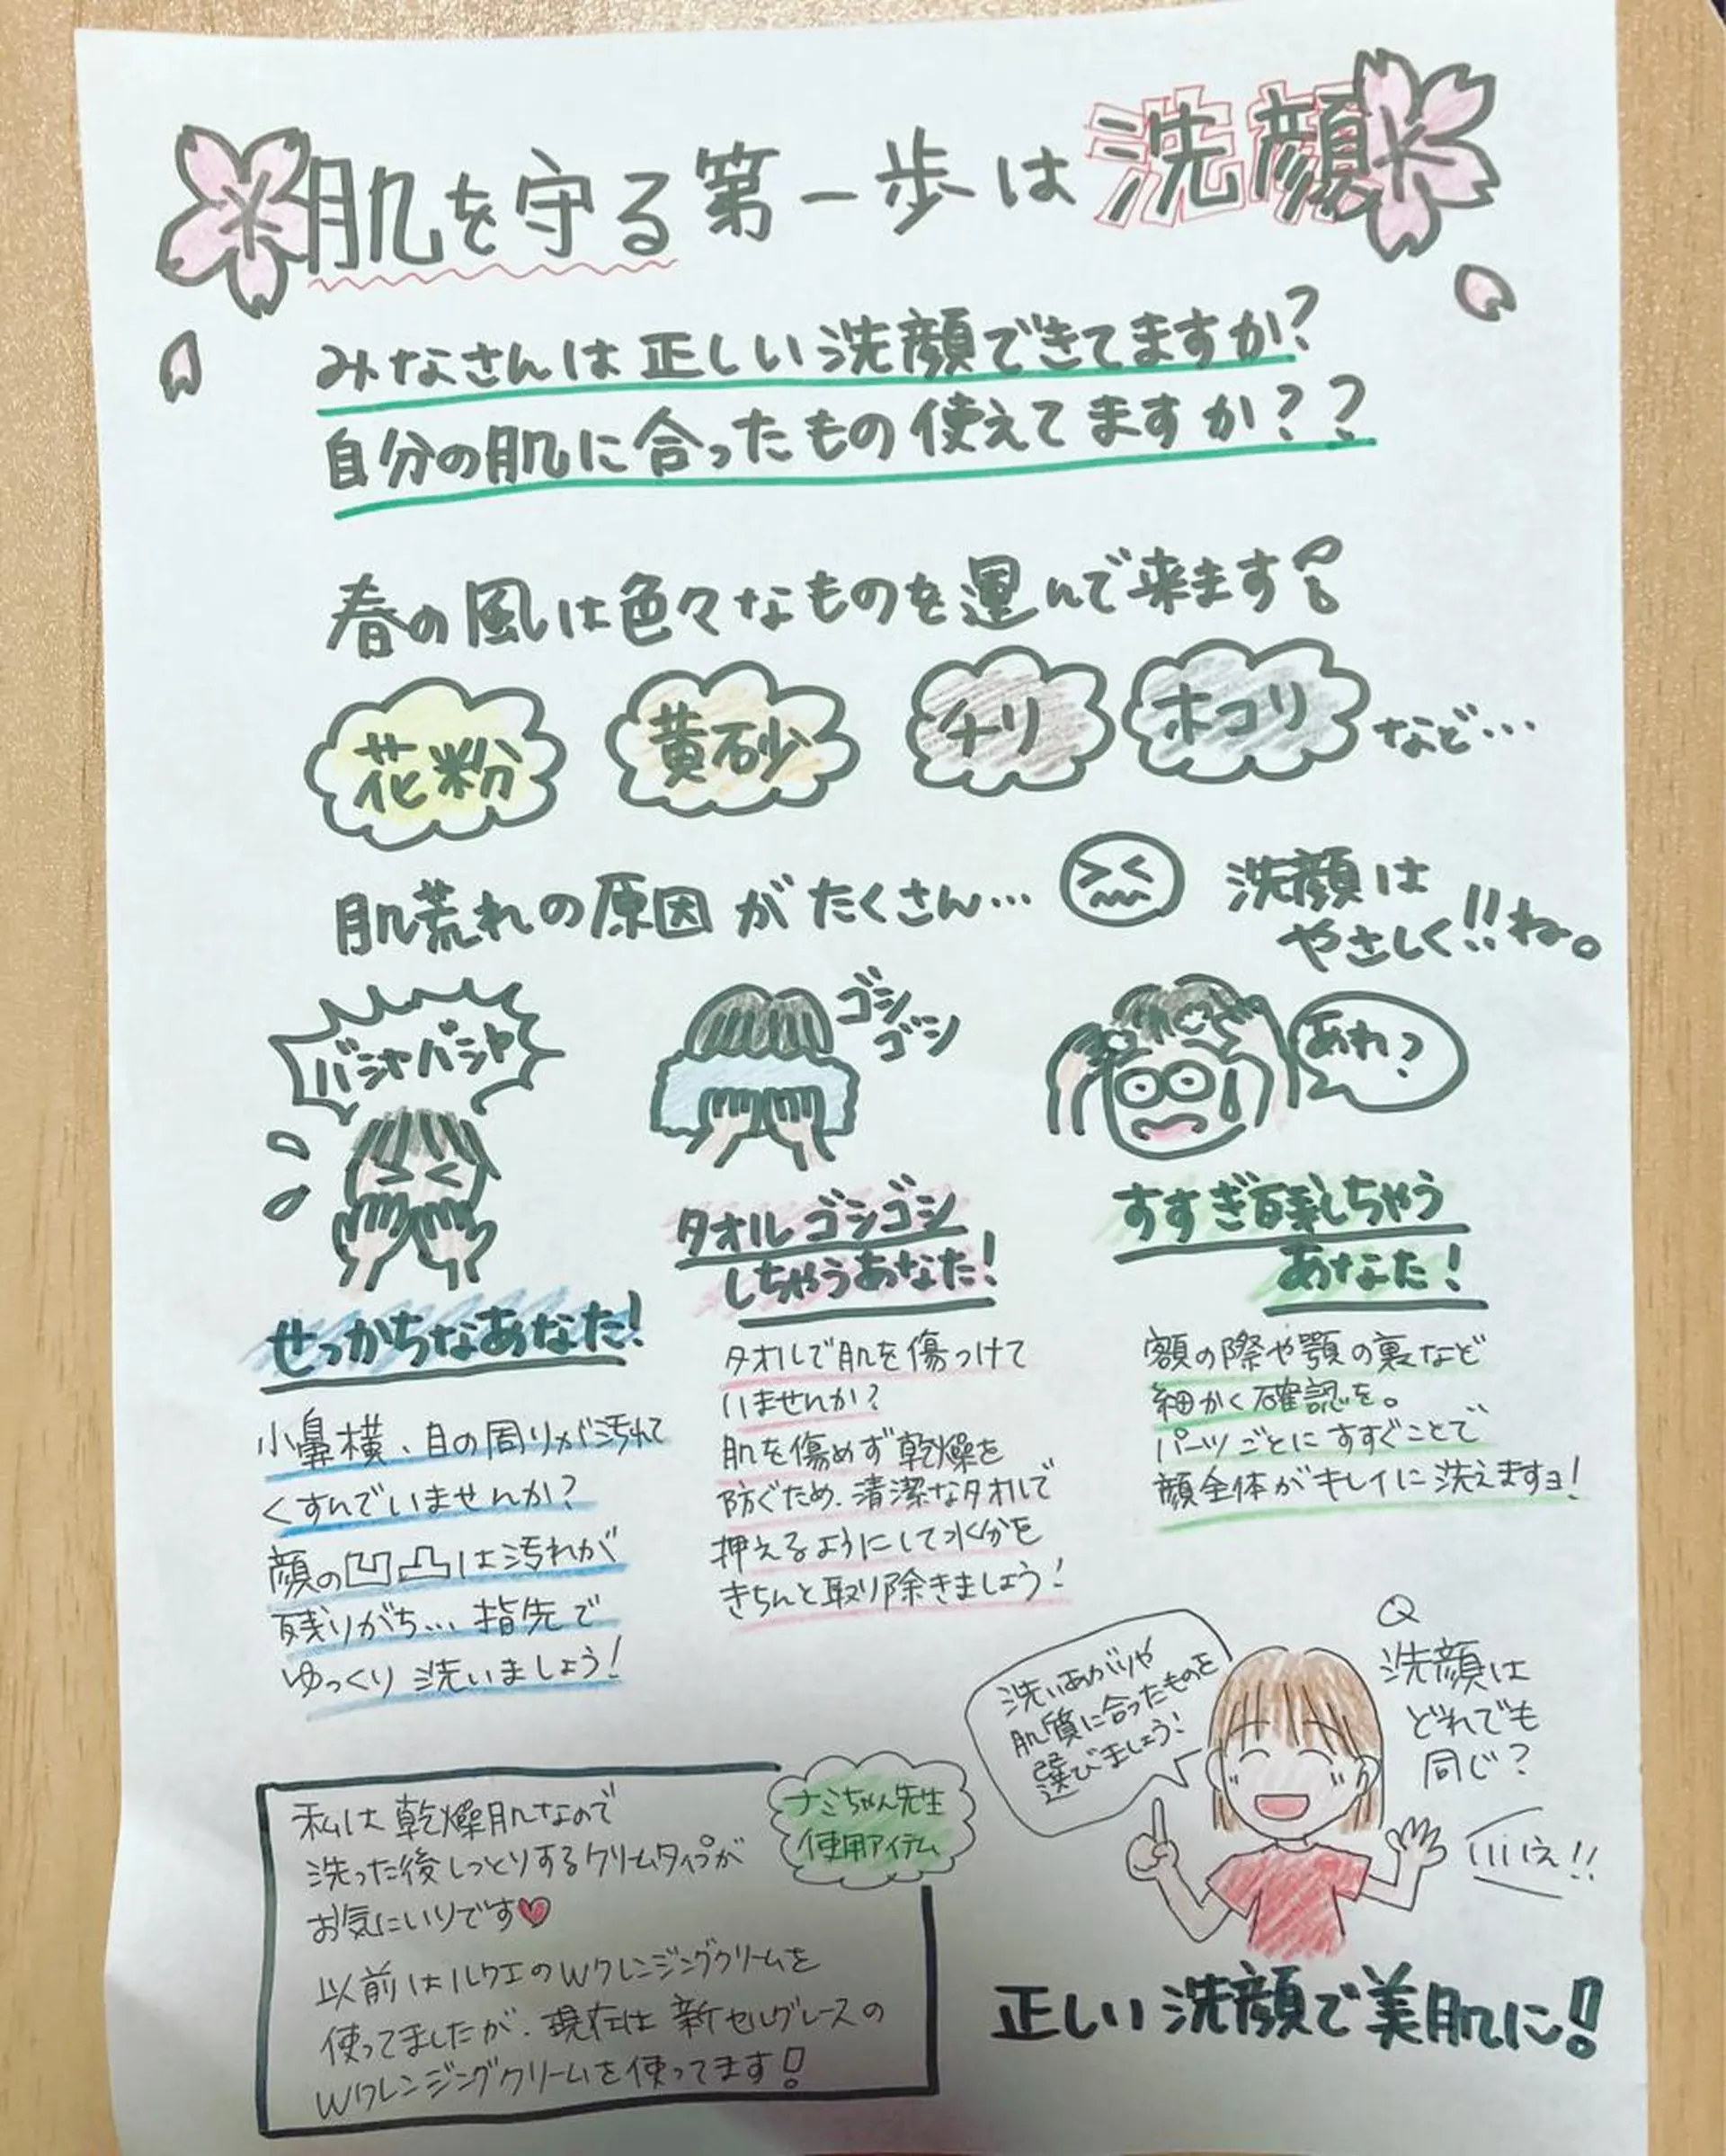 肌を守る第一歩は洗顔
みなさんは正しい洗顔できてますか?
自分の肌に合ったもの使えてますか??
春の風は色々なものを運んで来ます!
花粉
黄砂
チリ
ホコリ
など…
肌荒れの原因がたくさん…
洗顔は
やさしく!!ね。
バシャバシャ
せっかちなあなた!
小鼻横、目の周りが汚れて
くすんでいませんか?
顔の凹凸は汚れが
残りがち…指先で
ゆっくり洗いましょう!
ゴシ
ゴシ
タオルゴシゴシ
しちゃうあなた!
タオルで肌を傷つけて
いませんか?
肌を傷めず乾燥を
防ぐため、清潔なタオルで
押えるようにして水分を
きちんと取り除きましょう!
あれっ
すすぎ残しちゃう
あなた!
額の際や顎の裏など
細かく確認を。
パーツごとにすすぐことで
顔全体がキレイに洗えますョ!
Q
洗顔は
どれでも
同じ?
いいえ!!
洗いあがりや
肌質に合ったものを
選びましょう!
ナミちゃん先生
使用アイテム
私は乾燥肌なので
洗った後しっとりするクリームタイプが
お気にいりです♥
以前はルクエのWクレンジングクリームを
使ってましたが、現在は新セルグレースの
Wクレンジングクリームを使ってます!
正しい洗顔で美肌に!